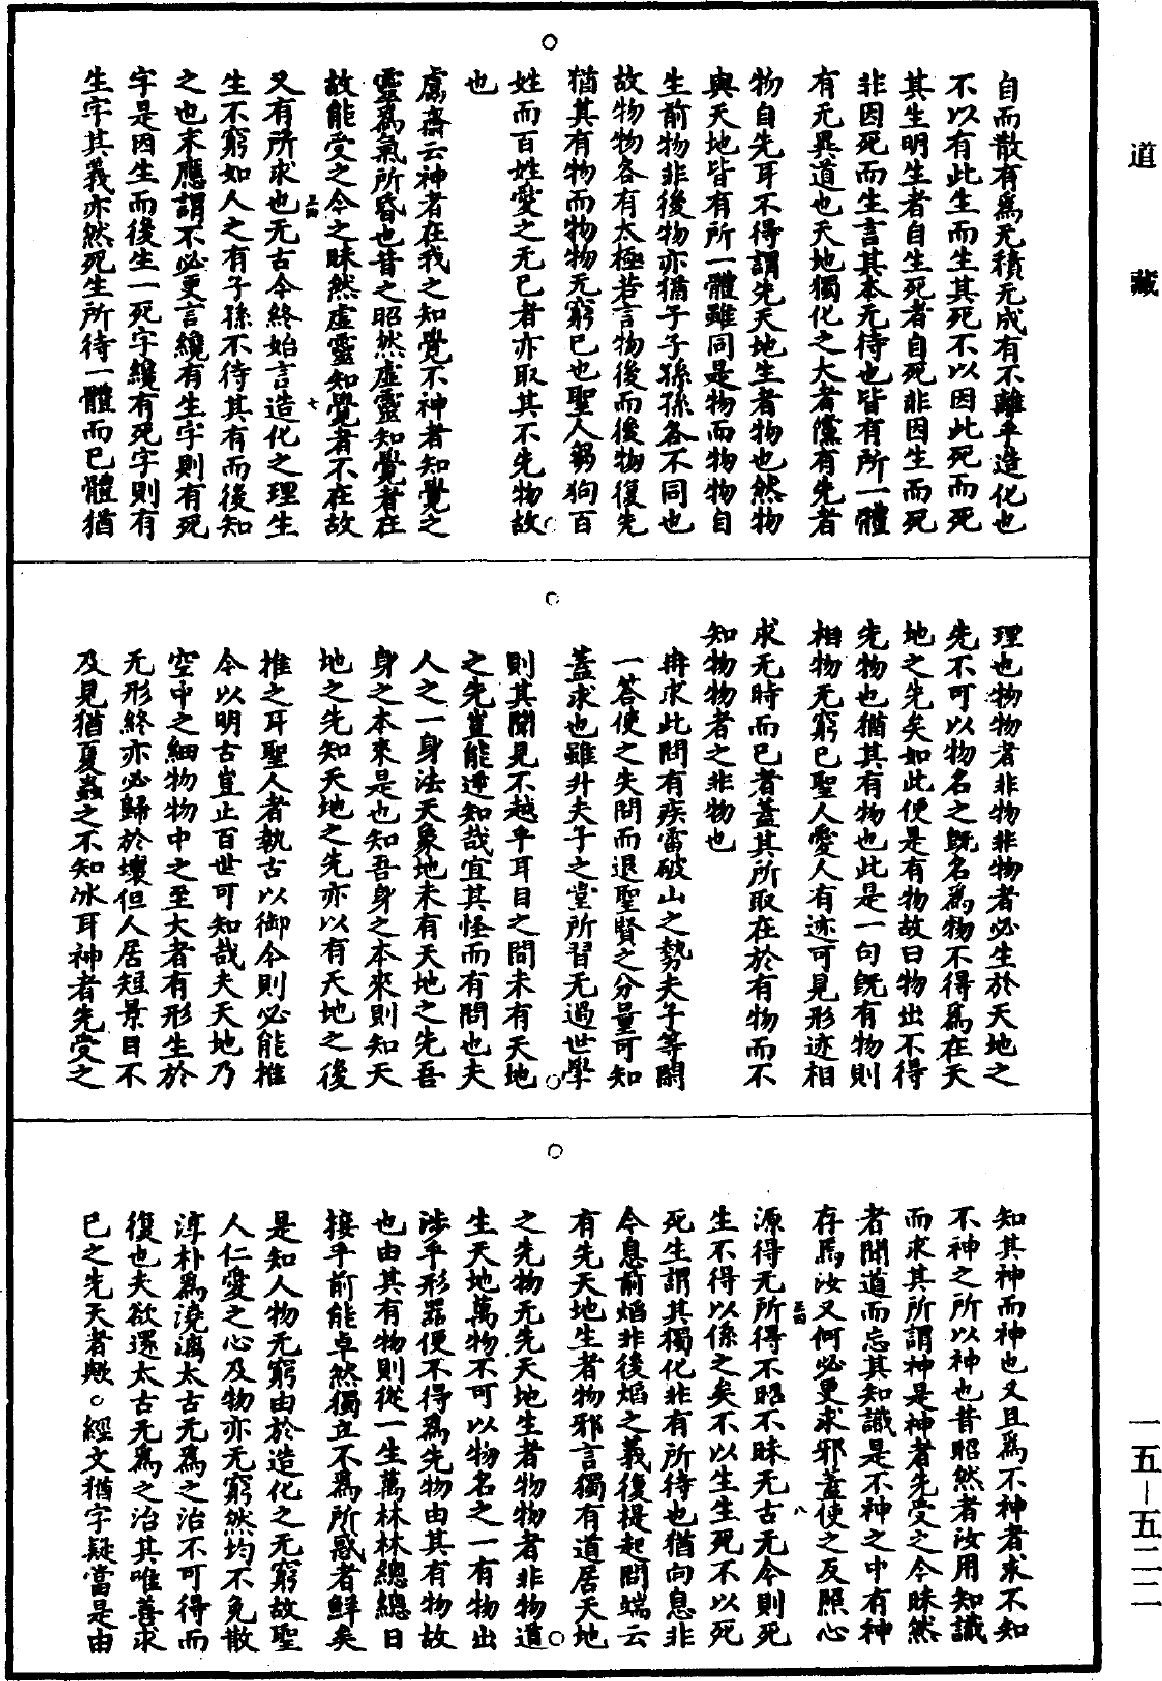 道藏
自而散有爲无積无成有不離乎造化也
不以有此生而生其死不以因此死而死
其生明生者自生死者自死非因生而死
非因死而生言其本无待也皆有所一體
有无異道也天地獨化之大者儻有先者
物自先耳不得謂先天地生者物也然物
與天地皆有所一體雖同是物而物物自
生前物非後物亦猶子子孫孫各不同也
故物物各有太極若言物後而後物復先
猶其有物而物物无窮已也聖人芻狗百
姓而百姓愛之无已者亦取其不先物故
也
鬳齋云神者在我之知覺不神者知覺之
靈爲氣所昏也昔之昭然虛靈知覺者在
故能受之今之昧然虛靈知覺者不在故
又有所求也无古今終始言造化之理生
生不窮如人之有子孫不待其有而後知
之也末應謂不必更言纔有生字則有死
字是因生而後生一死字纔有死字則有
生字其義亦然死生所待一體而已體猶
理也物物者非物非物者必生於天地之
先不可以物名之旣名爲物不得爲在天
地之先矣如此便是有物故曰物出不得
先物也猶其有物也此是一句旣有物則
相物无窮已聖人愛人有迹可見形迹相
求无時而已者蓋其所取在於有物而不
知物物者之非物也
冉求此問有疾雷破山之勢夫子等閑
一答使之失問而退聖賢之分量可知
蓋求也雖升夫子之堂所習无過世學
則其聞見不越乎耳目之間未有天地
之先豈能逆知哉宜其怪而有問也夫
人之一身法天象地未有天地之先吾
身之本來是也知吾身之本來則知天
地之先知天地之先亦以有天地之後
推之耳聖人者執古以御今則必能推
今以明古豈止百世可知哉夫天地乃
空中之細物物中之至大者有形生於
无形終亦必歸於壞但人居短景目不
及見猶夏蟲之不知冰耳神者先受之
知其神而神也又且爲不神者求不知
不神之所以神也昔昭然者汝用知識
而求其所謂神是神者先受之今昧然
者聞道而忘其知識是不神之中有神
存焉汝又何必更求邪蓋使之反照心
源得无所得不昭不昧无古无今則死
生不得以係之矣不以生生死不以死
死生謂其獨化非有所待也猶向息非
今息前焰非後焰之義後提起問端云
有先天地生者物邪言獨有道居天地
之先物无先天地生者物物者非物道
生天地萬物不可以物名之一有物出
涉乎形器便不得爲先物由其有物故
也由其有物則從一生萬林林總總日
接乎前能卓然獨立不爲所惑者鮮矣
是知人物无窮由於造化之无窮故聖
人仁愛之心及物亦无窮然均不免散
淳朴爲澆漓太古无爲之治不可得而
復也夫欲還太古无爲之治其唯善求
已之先天者歟○經文猶字疑當是由
三四
七
三四
八
一五—五二二